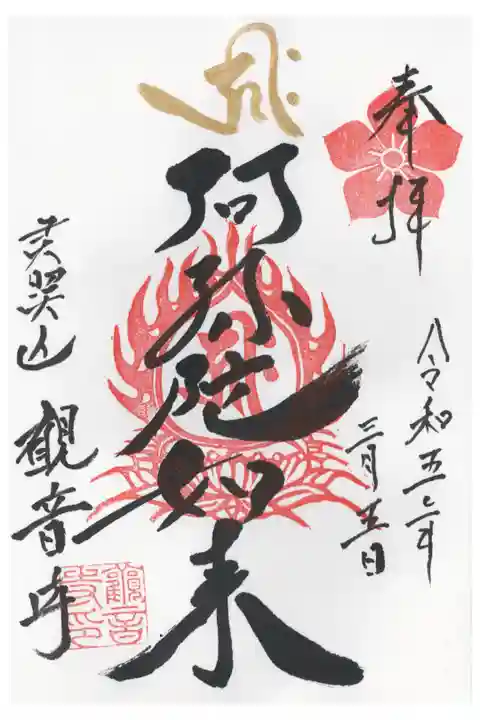 奉拝
令和五年
三月五日
阿弥陀如来
観音寺
觀音
寺印